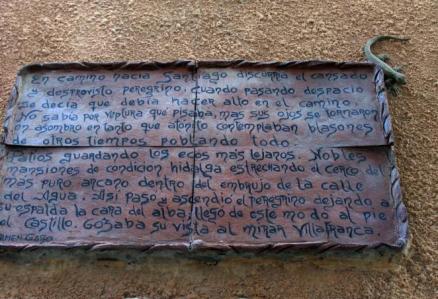 En camino hacia Santiago discurría el cansado
y desprovisto peregrino, cuando pasando despacio
se decía que debía hacer alto en el camino
No sabía por ventura que pisaba, mas sus ojos se tornaron
en asombro en tanto que atónito contemplaban blasones
de otros tiempos poblando todo.
Patios guardando los ecos más lejanos. Nobles
mansiones de condición hidalga estrechando el cerco de
más puro arcano dentro del embrujo de la calle
del Agua. Así paso y ascendió el peregrino dejando a
su espalda la cara del alba, llego de este modo al pie
el Castillo. Gozaba su vista al mirar Villafranca.